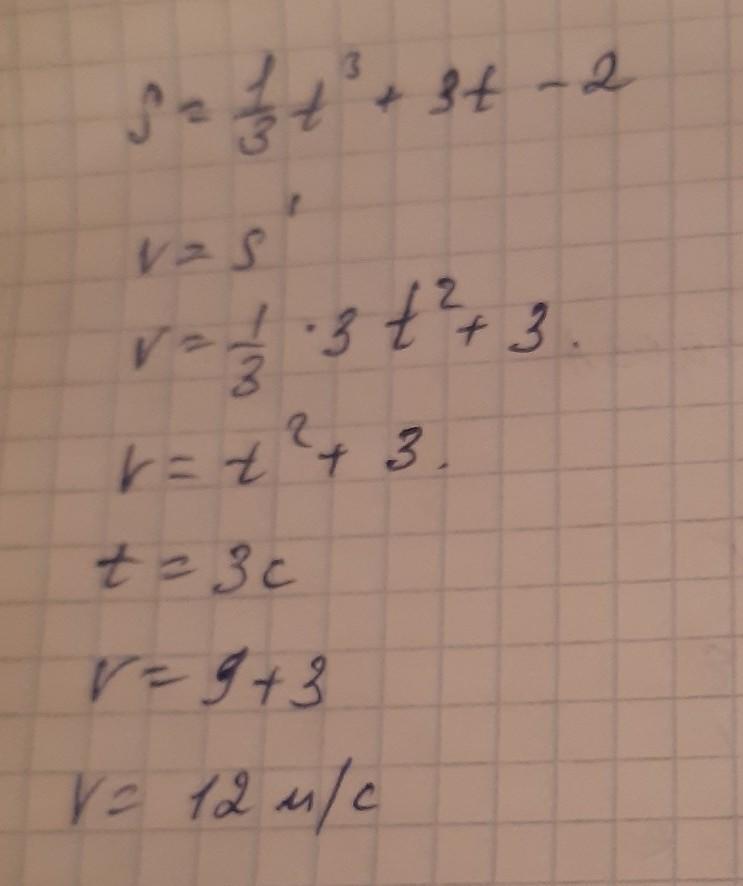 S = 1/3 t³ + 3t - 2
v = s'
v = 1/3 · 3 t² + 3.
v = t² + 3.
t = 3с
v = 9 + 3
v = 12 м/с